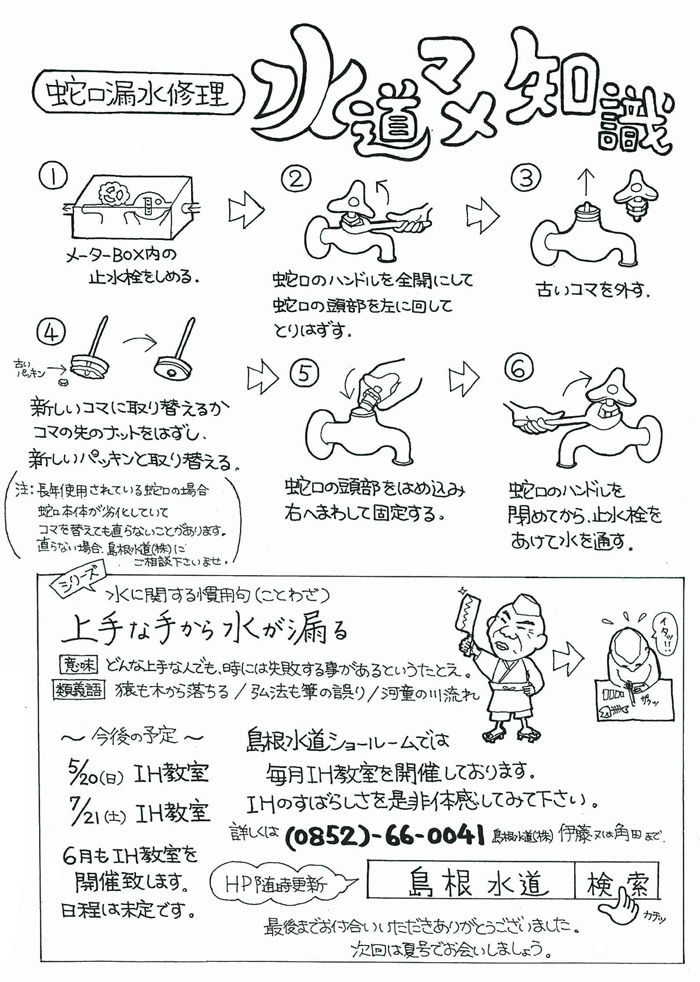 蛇口漏水修理
水道マメ知識
①
メーターBOX内の
止水栓をしめる.
②
蛇口のハンドルを全開にして
蛇口の頭部を左に回して
とりはずす.
③
古いコマを外す.
④
古い
パッキン
新しいコマに取り替えるか
コマの先のナットをはずし、
新しいパッキンと取り替える。
注:長年使用されている蛇口の場合
蛇口本体が劣化していて
コマを替えても直らないことがあります。
直らない場合、島根水道(株)に
ご相談下さいませ。
⑤
蛇口の頭部をはめ込み
右へまわして固定する。
⑥
蛇口のハンドルを
閉めてから、止水栓を
あけて水を通す。
シリーズ
水に関する慣用句(ことわざ)
上手な手から水が漏る
意味 どんな上手な人でも、時には失敗する事があるというたとえ。
類義語 猿も木から落ちる/弘法も筆の誤り/河童の川流れ
イタッ!!
ザクッ
~今後の予定~
5/20(日) IH教室
7/21(土) IH教室
6月もIH教室を
開催致します。
日程は未定です。
島根水道ショールームでは
毎月IH教室を開催しております。
IHのすばらしさを是非体感してみて下さい。
詳しくは (0852)-66-0041 島根水道(株) 伊藤又は角田まで.
HP随時更新
島根水道 検索
カチッ
最後までお付合いいただきありがとうございました。
次回は夏号でお会いしましょう。